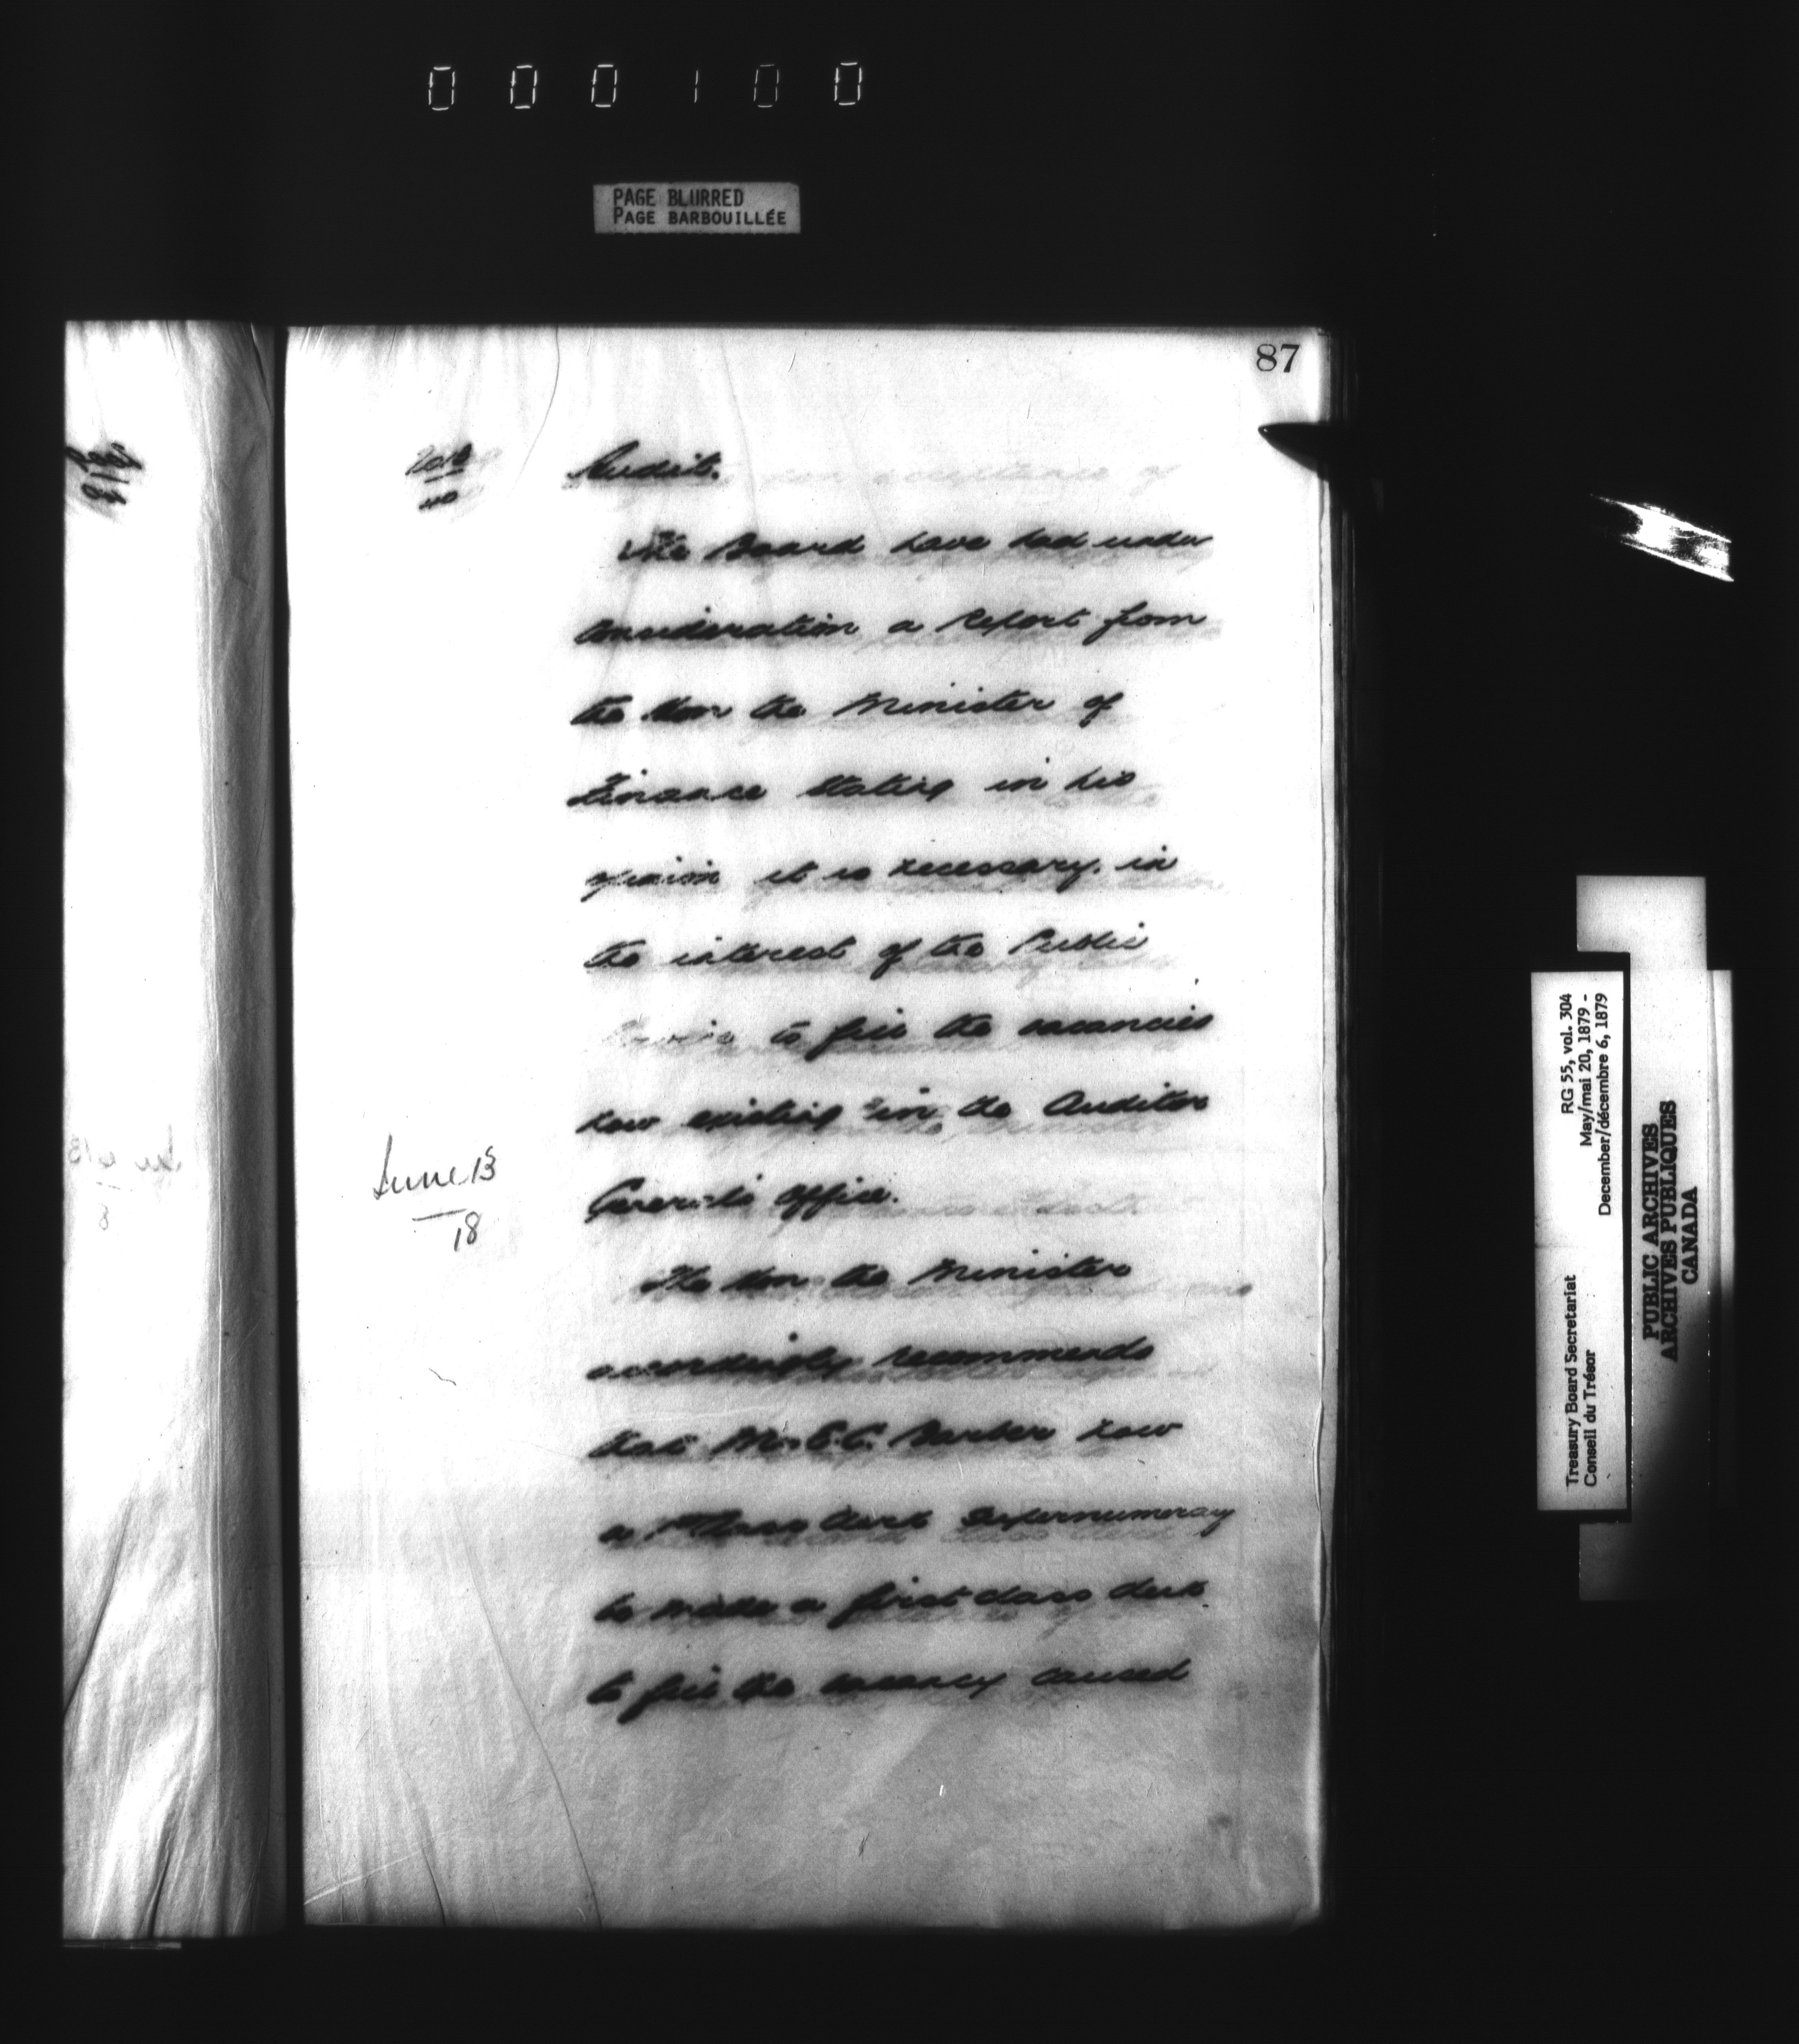 000100
PAGE BLURRED
PAGE BARBOUILLÉE
87
Audit.
The Board have had under
consideration a Report from
the Hon the Minister of
Finance stating in his
opinion it is necessary in
the interest of the Public
to fill the vacancies
now existing in the Auditor
General's Office.
June 13
18
The Hon the Minister
accordingly recommends
that Mr. E.C. Barber now
a 1st Class Clerk Supernumeray
be made a first class clerk
to fill the vacancy caused
Treasury Board Secretariat RG 55, vol. 304
Conseil du Trésor May/mai 20, 1879 -
December/décembre 6, 1879
PUBLIC ARCHIVES
ARCHIVES PUBLIQUES
CANADA